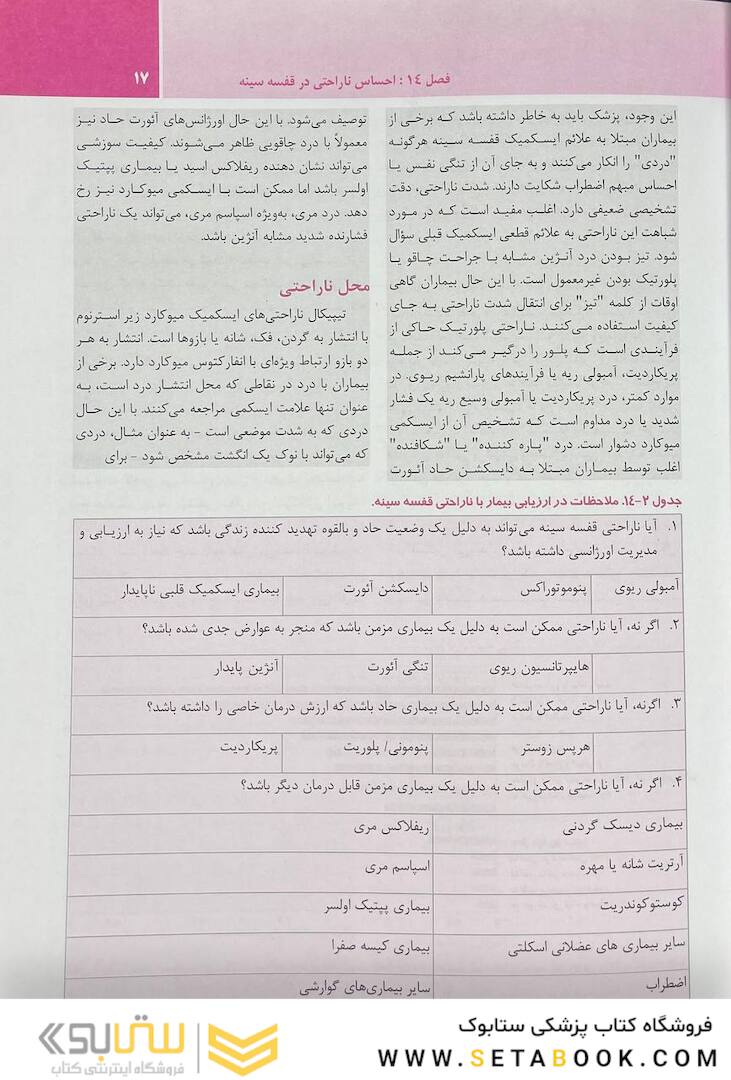 فصل ١٤ : احساس ناراحتی در قفسه سینه
١٧
این وجود، پزشک باید به خاطر داشته باشد که برخی از
بیماران مبتلا به علائم ایسکمیک قفسه سینه هرگونه
"دردی" را انکار می‌کنند و به جای آن از تنگی نفس یا
احساس مبهم اضطراب شکایت دارند. شدت ناراحتی، دقت
تشخیصی ضعیفی دارد. اغلب مفید است که در مورد
شباهت این ناراحتی به علائم قطعی ایسکمیک قبلی سؤال
شود. تیز بودن درد آنژین مشابه با جراحت چاقو یا
پلورتیک بودن غیرمعمول است. با این حال بیماران گاهی
اوقات از کلمه "تیز" برای انتقال شدت ناراحتی به جای
کیفیت استفاده می‌کنند. ناراحتی پلورتیک حاکی از
فرآیندی است که پلور را درگیر می‌کند از جمله
پریکاردیت، آمبولی ریه یا فرآیندهای پارانشیم ریوی. در
موارد کمتر، درد پریکاردیت یا آمبولی وسیع ریه یک فشار
شدید یا درد مداوم است که تشخیص آن از ایسکمی
میوکارد دشوار است. درد "پاره کننده" یا "شکافنده"
اغلب توسط بیماران مبتلا به دایسکشن حاد آئورت
توصیف می‌شود. با این حال اورژانس‌های آئورت حاد نیز
معمولاً با درد چاقویی ظاهر می‌شوند. کیفیت سوزشی
می‌تواند نشان دهنده ریفلاکس اسید یا بیماری پپتیک
اولسر باشد اما ممکن است با ایسکمی میوکارد نیز رخ
دهد. درد مری، به‌ویژه اسپاسم مری، می‌تواند یک ناراحتی
فشارنده شدید مشابه آنژین باشد.
محل ناراحتی
تیپیکال ناراحتی‌های ایسکمیک میوکارد زیر استرنوم
با انتشار به گردن، فک، شانه یا بازوها است. انتشار به هر
دو بازو ارتباط ویژه‌ای با انفارکتوس میوکارد دارد. برخی از
بیماران با درد در نقاطی که محل انتشار درد است، به
عنوان تنها علامت ایسکمی مراجعه می‌کنند. با این حال
دردی که به شدت موضعی است – به عنوان مثال، دردی
که می‌تواند با نوک یک انگشت مشخص شود – برای
جدول ٢-١٤. ملاحظات در ارزیابی بیمار با ناراحتی قفسه سینه.
۱. آیا ناراحتی قفسه سینه می‌تواند به دلیل یک وضعیت حاد و بالقوه تهدید کننده زندگی باشد که نیاز به ارزیابی و
مدیریت اورژانسی داشته باشد؟
آمبولی ریوی پنوموتوراکس دایسکشن آئورت بیماری ایسکمیک قلبی ناپایدار
۲. اگر نه، آیا ناراحتی ممکن است به دلیل یک بیماری مزمن باشد که منجر به عوارض جدی شده باشد؟
هایپرتانسیون ریوی تنگی آئورت آنژین پایدار
۳. اگرنه، آیا ناراحتی ممکن است به دلیل یک بیماری حاد باشد که ارزش درمان خاصی را داشته باشد؟
هرپس زوستر پنومونی/ پلوریت پریکاردیت
۴. اگر نه، آیا ناراحتی ممکن است به دلیل یک بیماری مزمن قابل درمان دیگر باشد؟
بیماری دیسک گردنی ریفلاکس مری
آرتریت شانه یا مهره اسپاسم مری
کوستوکوندریت بیماری پپتیک اولسر
سایر بیماری های عضلانی اسکلتی بیماری کیسه صفرا
اضطراب سایر بیماری‌های گوارشی
فروشگاه کتاب پزشکی ستابوک
WWW.SETABOOK.COM
ستابوک
فروشگاه اینترنتی کتاب